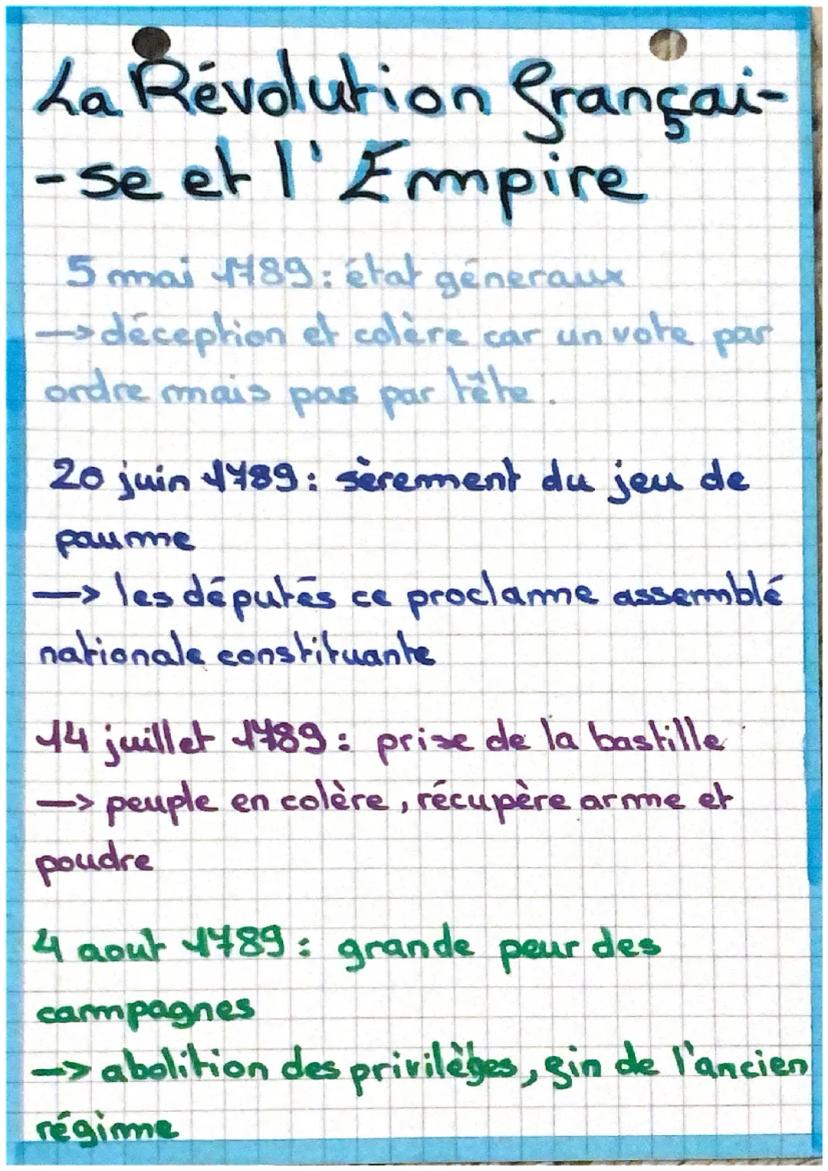 La Révolution françai-
-se et l'Empire
5 mai 1789 : état géneraux
—> déception et colère car un vote par
ordre mais pas par tête.
20 juin 1789 : sèrement du jeu de
paumme
—> les députés ce proclame assemblé
nationale constituante
14 juillet 1789 : prise de la bastille
—> peuple en colère, récupère arme et
poudre
4 aout 1789 : grande peur des
campagnes
—> abolition des privilèges, fin de l'ancien
régime